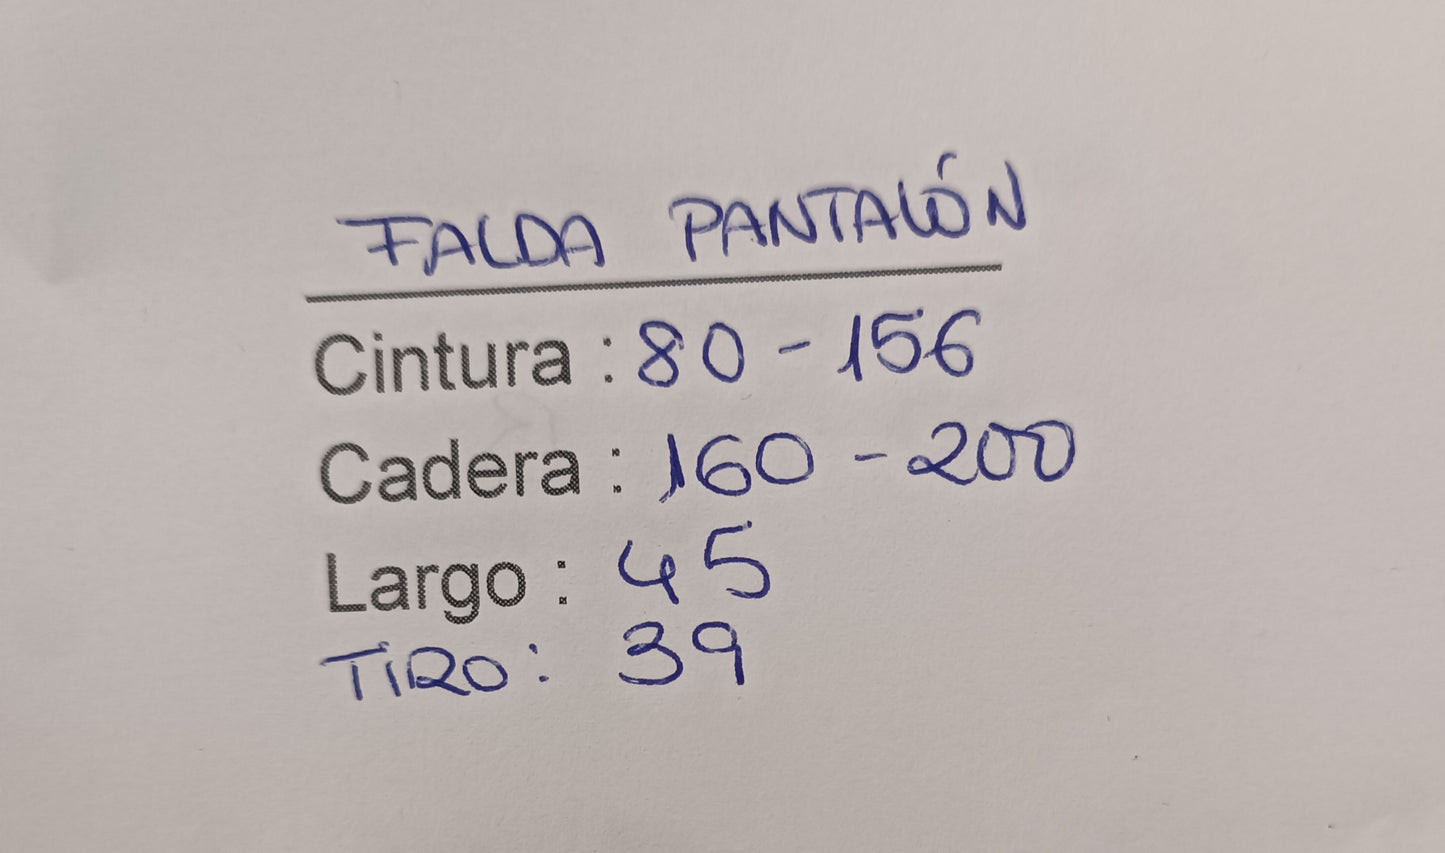 FALDA PANTALÓN
Cintura : 80 - 156
Cadera : 160 - 200
Largo : 45
TIRO : 39